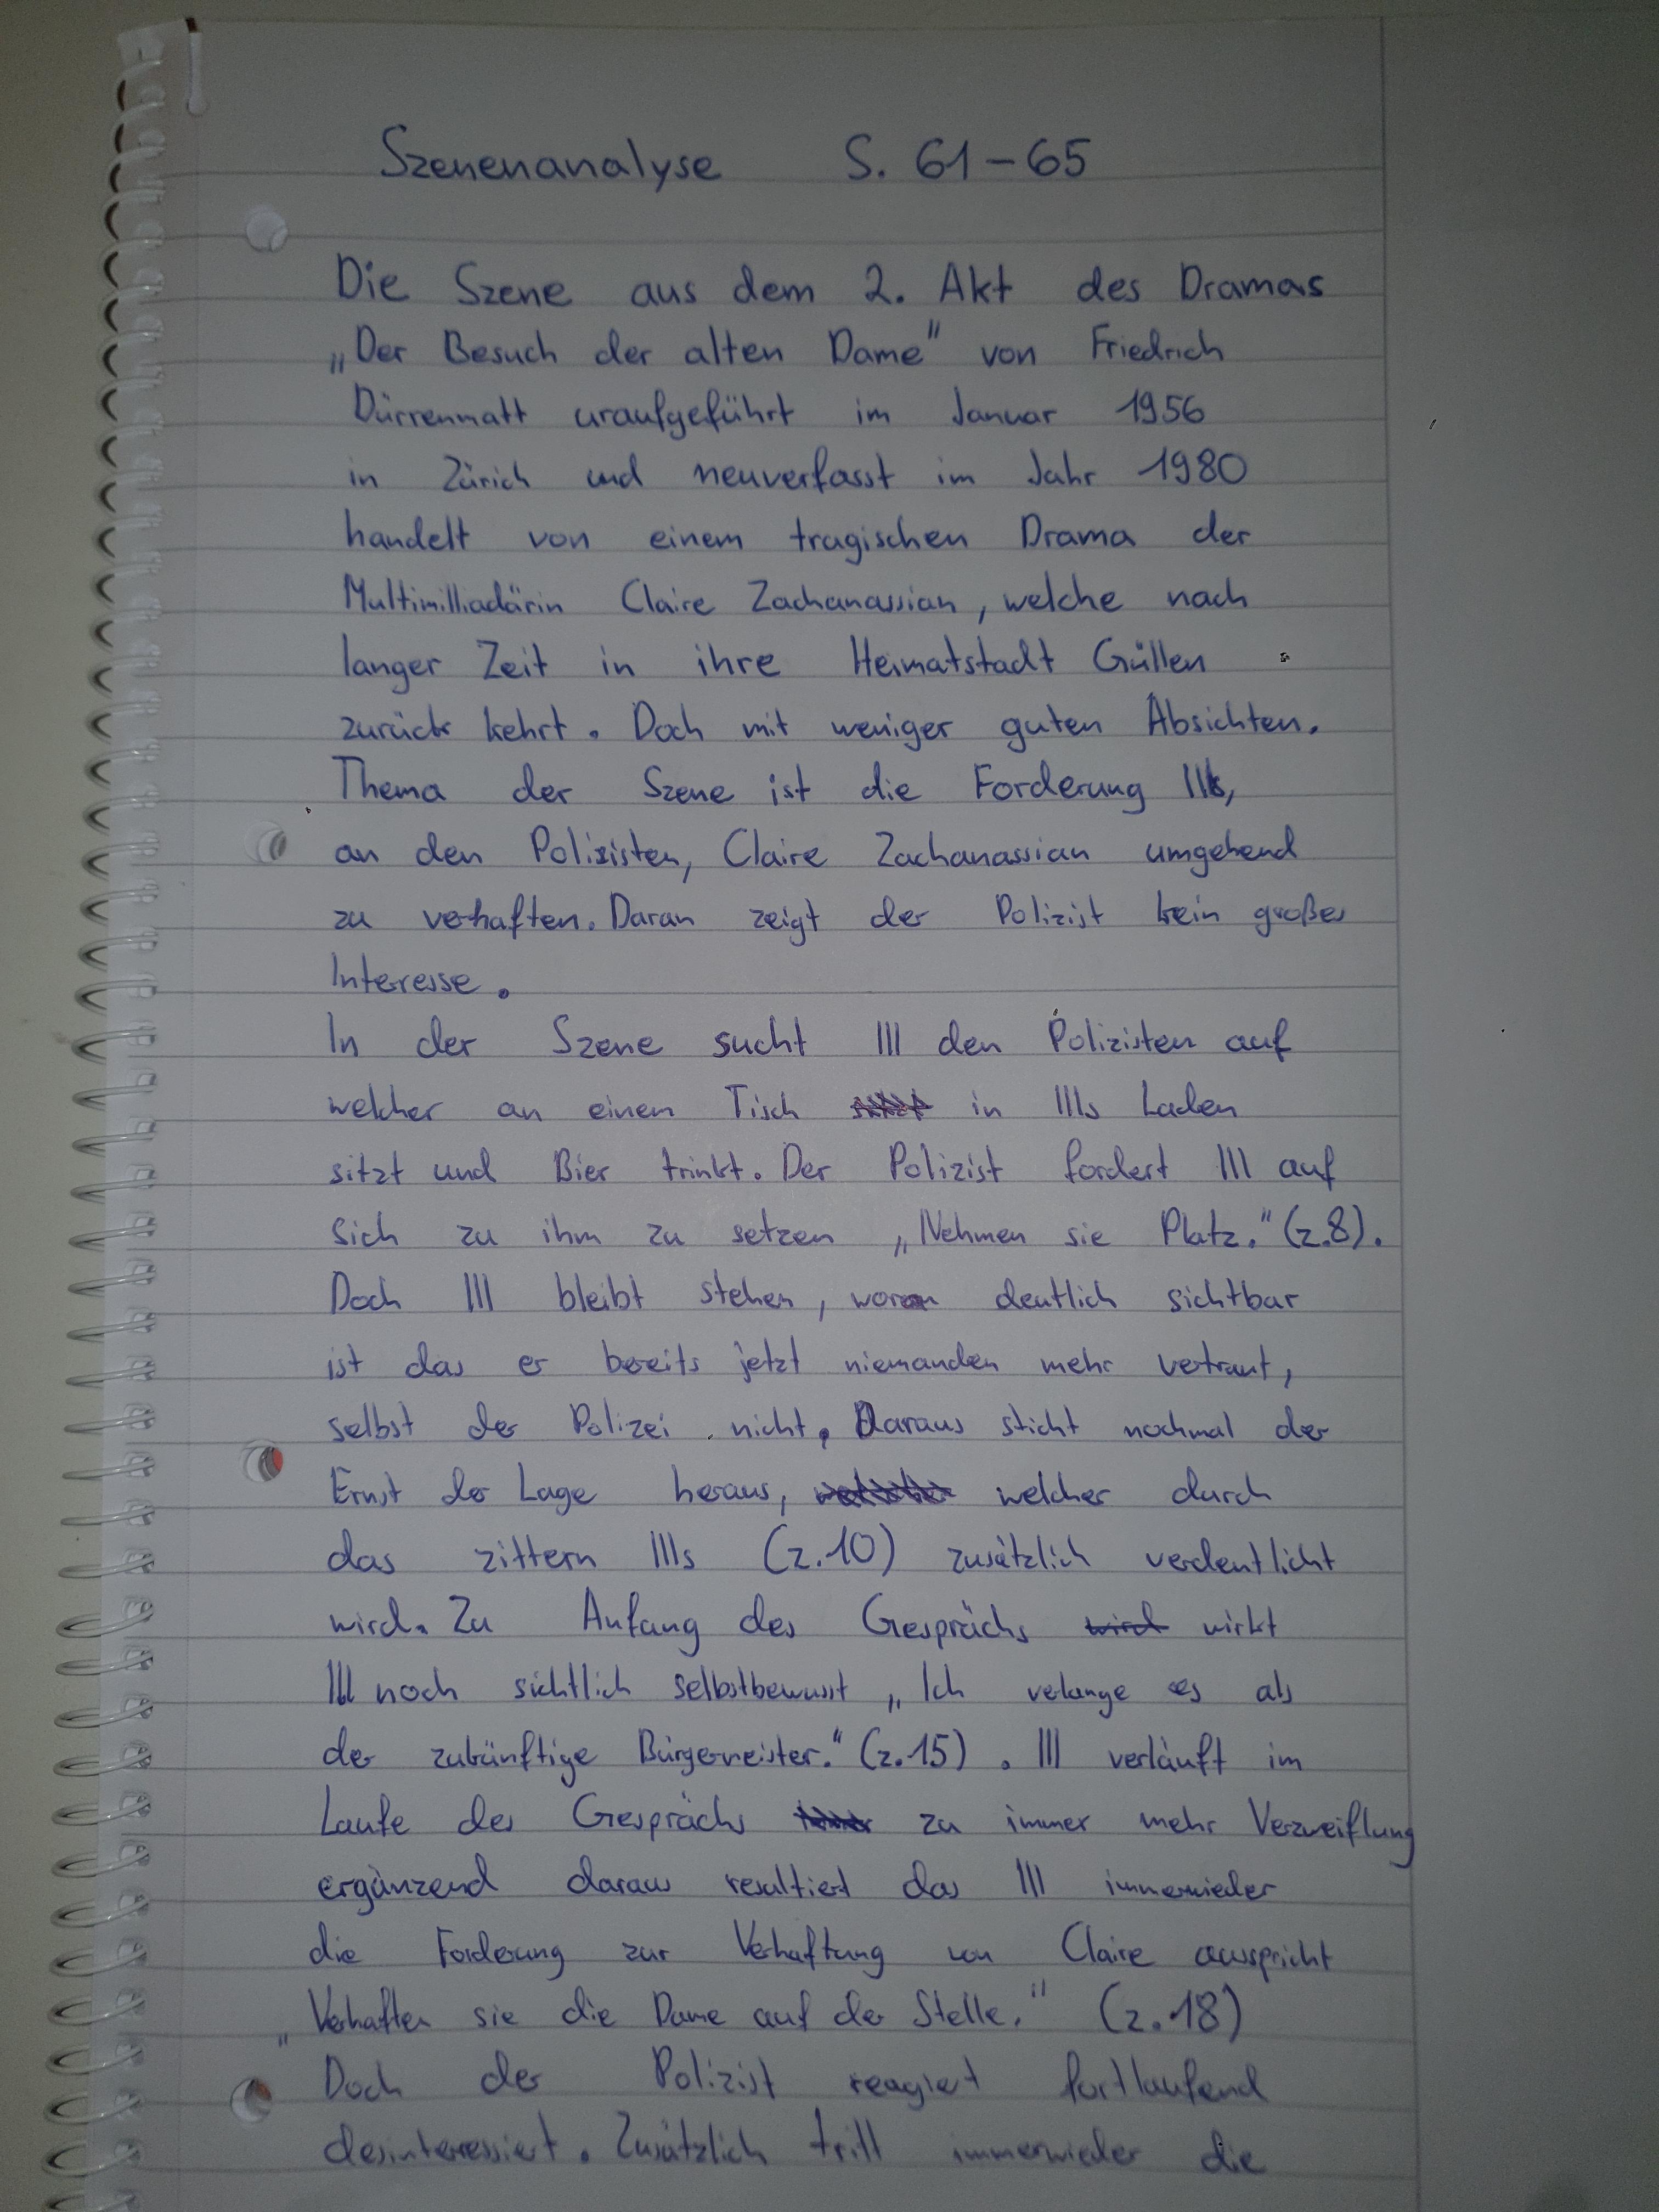 Szenenanalyse S. 61-65
Die Szene aus dem 2. Akt des Dramas
„Der Besuch der alten Dame" von Friedrich
Dürrenmatt uraufgeführt im Januar 1956
in Zürich und neuverfasst im Jahr 1980
handelt von einem tragischen Drama der
Multimilliadärin Claire Zachanassian, welche nach
langer Zeit in ihre Heimatstadt Güllen
zurück kehrt. Doch mit weniger guten Absichten.
Thema der Szene ist die Forderung Ills,
an den Polizisten, Claire Zachanassian umgehend
zu verhaften. Daran zeigt der Polizist kein großes
Interesse.
In der Szene sucht Ill den Polizisten auf
welcher an einen Tisch in Ills Laden
sitzt und Bier trinkt. Der Polizist fordert Ill auf
sich zu ihm zu setzen „Nehmen sie Platz." (z.8).
Doch Ill bleibt stehen, woran deutlich sichtbar
ist das er bereits jetzt niemanden mehr vertraut,
selbst der Polizei nicht. Daraus sticht nochmal der
Ernst der Lage heraus, welcher durch
das zittern Ills (z.10) zusätzlich verdeutlicht
wird. Zu Anfang des Gesprächs wird wirkt
Ill noch sichtlich selbstbewusst „Ich velange es als
der zukünftige Bürgermeister." (z.15). Ill verläuft im
Laufe des Gesprächs zu immer mehr Verzweiflung
ergänzend daraus resultiert das Ill immerwieder
die Forderung zur Verhaftung von Claire ausspricht
„Verhaften sie die Dame auf der Stelle." (z.18)
Doch der Polizist reagiert fortlaufend
desinteressiert. Zusätzlich tritt immerwieder die